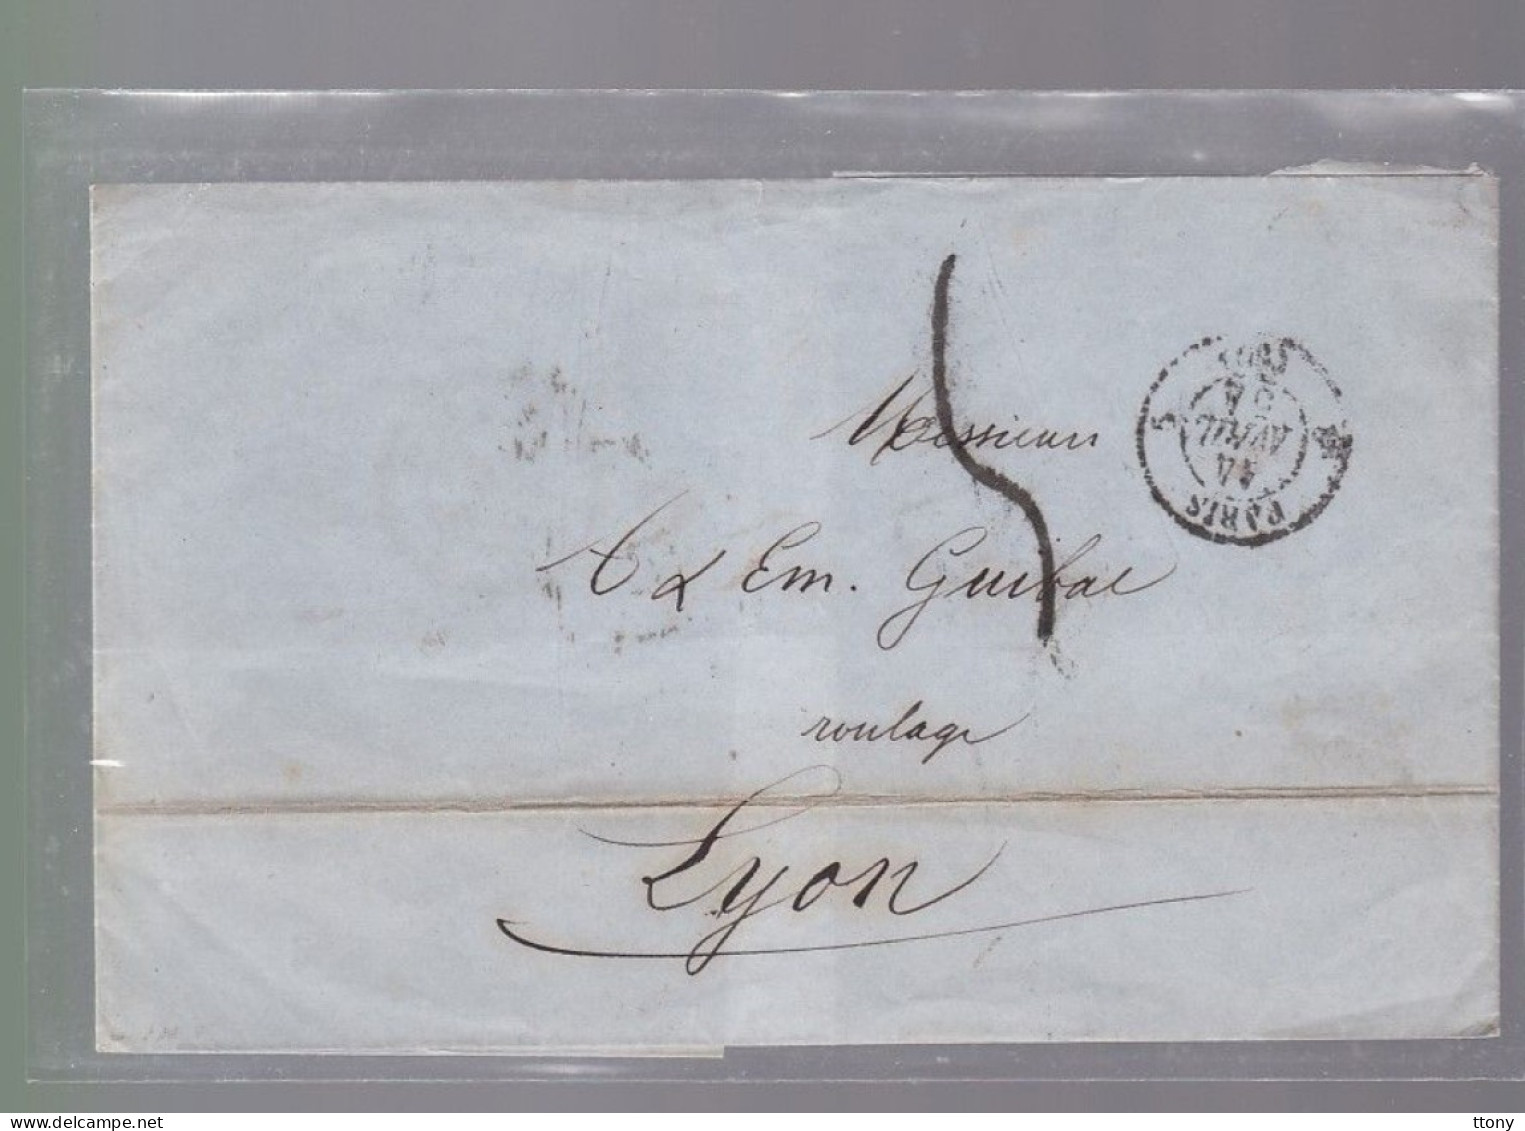 Messieurs
C & Em. Guibal
roulage
Lyon
PARIS
14
AVRIL
5
Website : www.delcampe.net
ttony